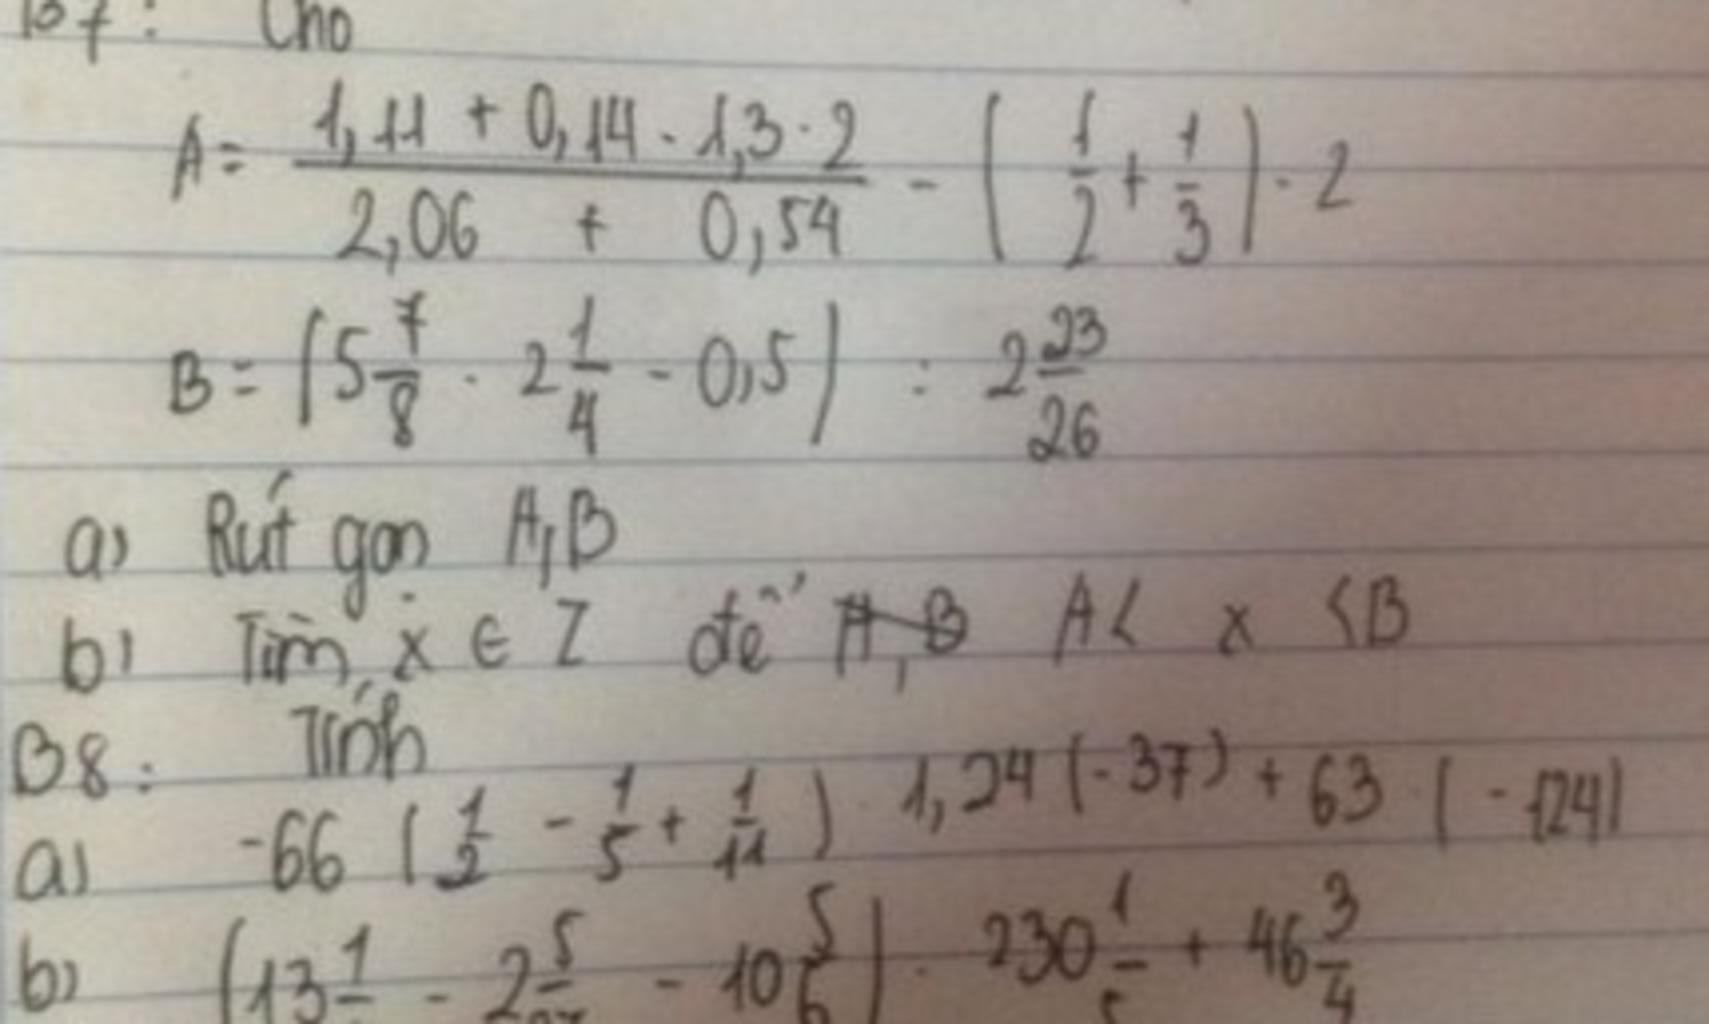 B7: Cho
A = (1,11 + 0,14 - 1,3 · 2)/(2,06 + 0,54) - (1/2 + 1/3) · 2
B = (5 7/8 · 2 1/4 - 0,5) : 2 23/26
a) Rút gọn A,B
b) Tìm x ∈ Z để A < x < B
B8: Tính
a) -66 (1/2 - 1/5 + 1/11) 1,24 (-37) + 63 (-124)
b) (13 1/ - 2 5/ - 10 5/6) · 230 1/ + 46 3/4